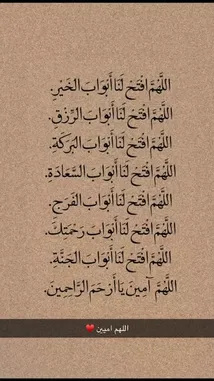 اللَّهُمَّ افْتَحْ لَنَا أَبْوَابَ الخَيْرِ.
اللَّهُمَّ افْتَحْ لَنَا أَبْوَابَ الرِّزْقِ.
اللَّهُمَّ افْتَحْ لَنَا أَبْوَابَ البَرَكَةِ.
اللَّهُمَّ افْتَحْ لَنَا أَبْوَابَ السَّعَادَةِ.
اللَّهُمَّ افْتَحْ لَنَا أَبْوَابَ الفَرَجِ.
اللَّهُمَّ افْتَحْ لَنَا أَبْوَابَ رَحْمَتِكَ.
اللَّهُمَّ افْتَحْ لَنَا أَبْوَابَ الجَنَّةِ.
اللَّهُمَّ آمِينَ يَا أَرْحَمَ الرَّاحِمِينَ.
اللهم امين ❤️